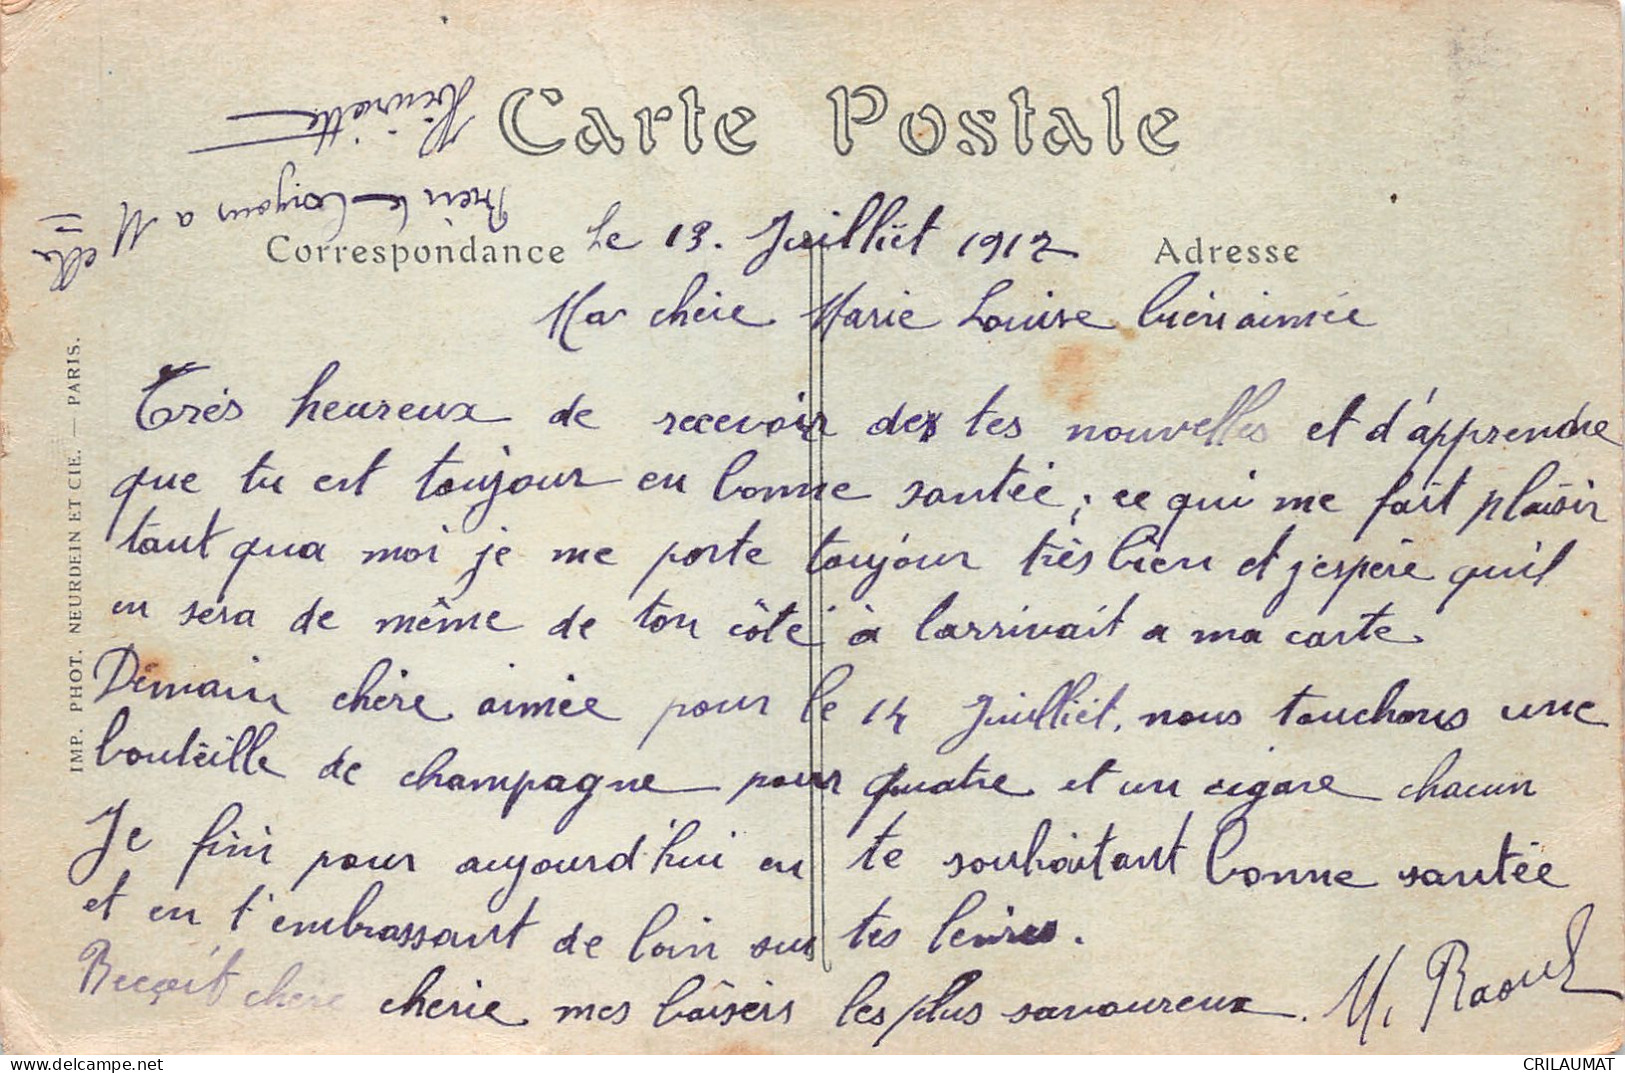 Carte Postale
Correspondance
Adresse
Bien le Bonjour à M
elle
Henriette
Le 13. Juilliet 1917
Ma chère Marie Louise bien aimée
Très heureux de recevoir des tes nouvelles et d'apprendre
que tu est toujour en bonne santée, ce qui me fait plaisir
tant qua moi je me porte toujour très bien et j'espère qu'il
en sera de même de ton côté à larrivait a ma carte.
Demain chère aimée pour le 14 Juilliet, nous touchons une
bouteille de champagne pour quatre et un cigare chacun
Je finir pour aujourd'hui en te souhaitant bonne santée
et en t'embrassant de loin sur tes levres.
Reçoit chere cherie mes baisers les plus savoureux. M. Raoul
IMP. PHOT. NEURDEIN ET CIE. — PARIS.
delcampe.net
CRILAUMAT